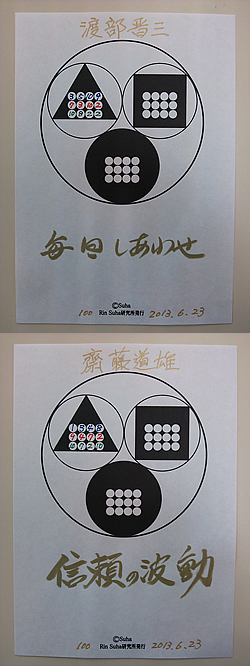 渡部晋三
毎日しあわせ
©Suha
Rin Suha研究所発行
100 2013.6.23
齋藤道雄
信頼の波動
©Suha
Rin Suha研究所発行
100 2013.6.23